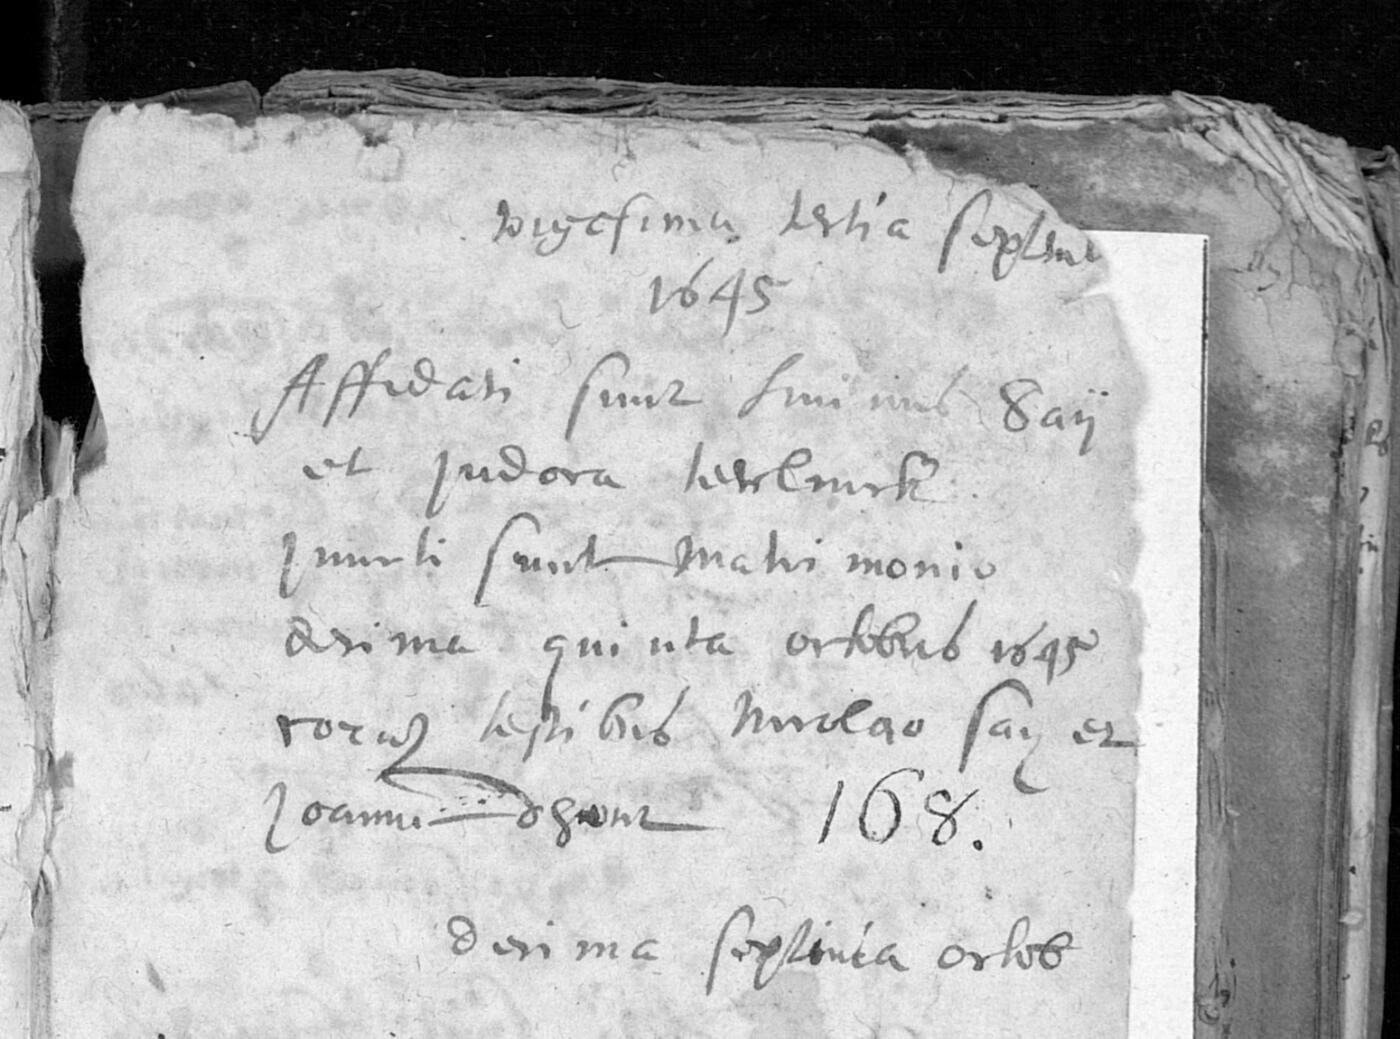 vigesima tertia septem
1645
Affidati sunt Livinus Saij
et Judoca
Juncti sunt Matrimonio
decima quinta octobris 1645
coram testibus Nicolao Saij et
Joanne
168.
decima septima octob